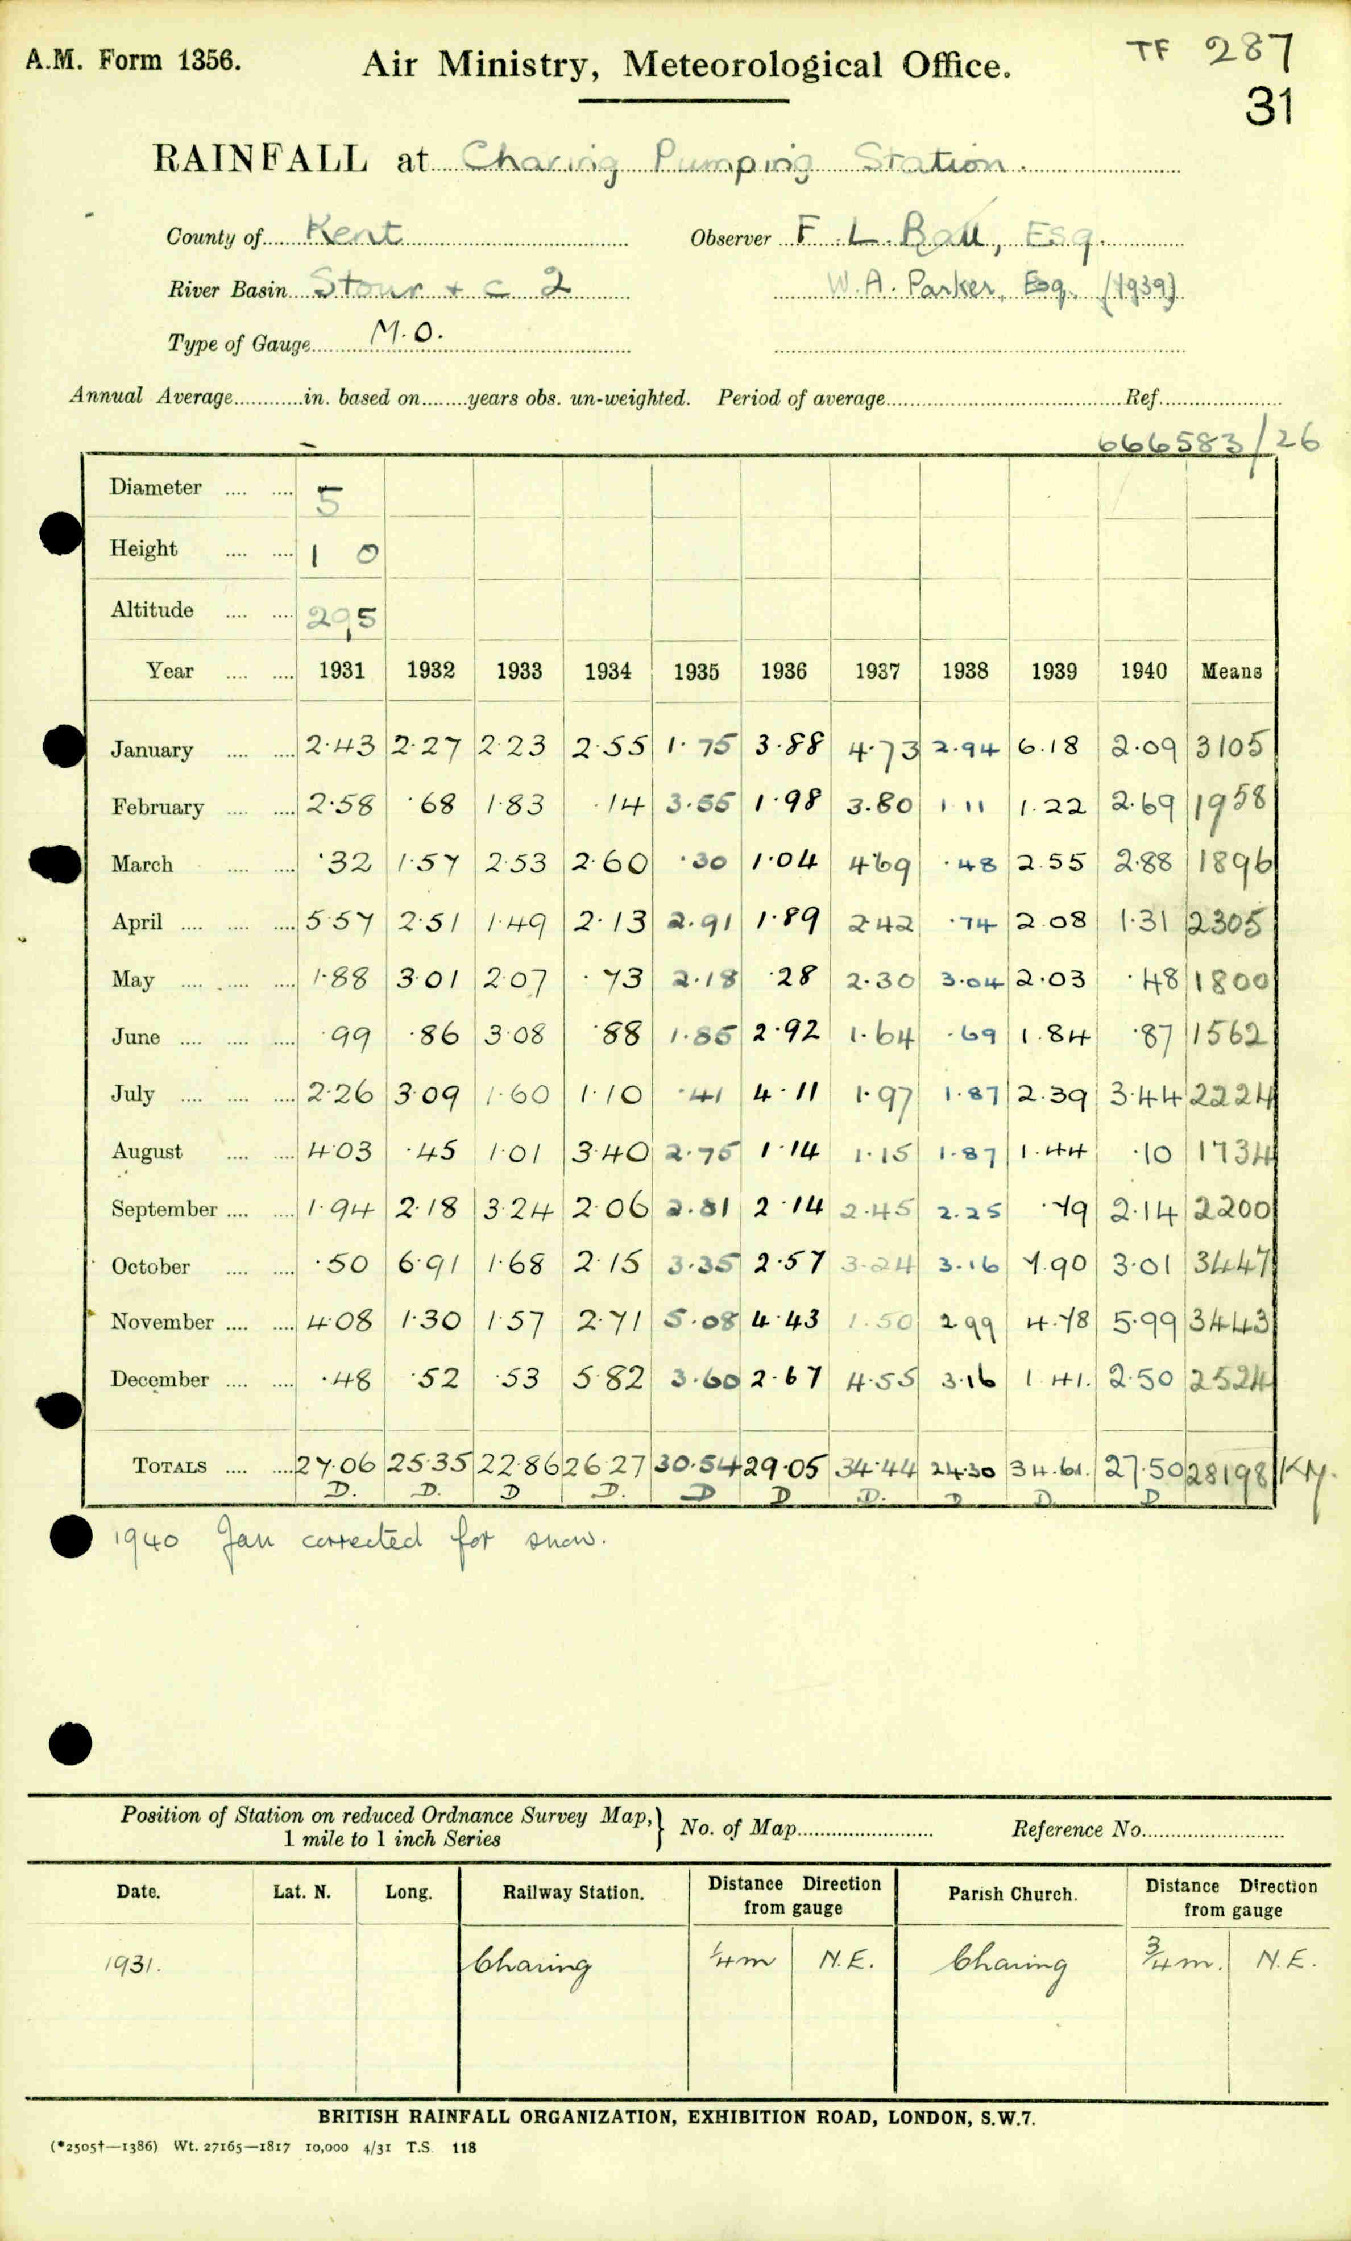 A.M. Form 1356.
Air Ministry, Meteorological Office.
TF 287
31
RAINFALL at Charing Pumping Station.
County of Kent Observer F. L. Ball, Esq.
River Basin Stour + c 2 W. A. Parker, Esq. (1939)
Type of Gauge M.O.
Annual Average............in. based on........years obs. un-weighted. Period of average.................... Ref....................
666583/26
Diameter .... .... 5
Height .... .... 1 0
Altitude .... .... 295
Year .... .... 1931 1932 1933 1934 1935 1936 1937 1938 1939 1940 Means
January .... .... 2.43 2.27 2.23 2.55 1.75 3.88 4.73 2.94 6.18 2.09 3105
February .... .... 2.58 .68 1.83 .14 3.55 1.98 3.80 1.11 1.22 2.69 1958
March .... .... .32 1.57 2.53 2.60 .30 1.04 4.69 .48 2.55 2.88 1896
April .... .... .... 5.57 2.51 1.49 2.13 2.91 1.89 2.42 .74 2.08 1.31 2305
May .... .... .... 1.88 3.01 2.07 .73 2.18 .28 2.30 3.04 2.03 .48 1800
June .... .... .... .99 .86 3.08 .88 1.85 2.92 1.64 .69 1.84 .87 1562
July .... .... .... 2.26 3.09 1.60 1.10 .41 4.11 1.97 1.87 2.39 3.44 2224
August .... .... 4.03 .45 1.01 3.40 2.75 1.14 1.15 1.87 1.44 .10 1734
September .... .... 1.94 2.18 3.24 2.06 2.81 2.14 2.45 2.25 .79 2.14 2200
October .... .... .50 6.91 1.68 2.15 3.35 2.57 3.24 3.16 7.90 3.01 3447
November .... .... 4.08 1.30 1.57 2.71 5.08 4.43 1.50 2.99 4.78 5.99 3443
December .... .... .48 .52 .53 5.82 3.60 2.67 4.55 3.16 1.41. 2.50 2524
TOTALS .... .... 27.06 25.35 22.86 26.27 30.54 29.05 34.44 24.30 34.61. 27.50 28198
D. D. D D. D D D. D D. D
1940 Jan corrected for snow.
Position of Station on reduced Ordnance Survey Map,} No. of Map........................ Reference No.........................
1 mile to 1 inch Series
Date. Lat. N. Long. Railway Station. Distance Direction from gauge Parish Church. Distance Direction from gauge
1931. Charing ¼m N.E. Charing ¾m. N.E.
BRITISH RAINFALL ORGANIZATION, EXHIBITION ROAD, LONDON, S.W.7.
(*2505†—1386) Wt. 27165—1817 10,000 4/31 T.S. 118